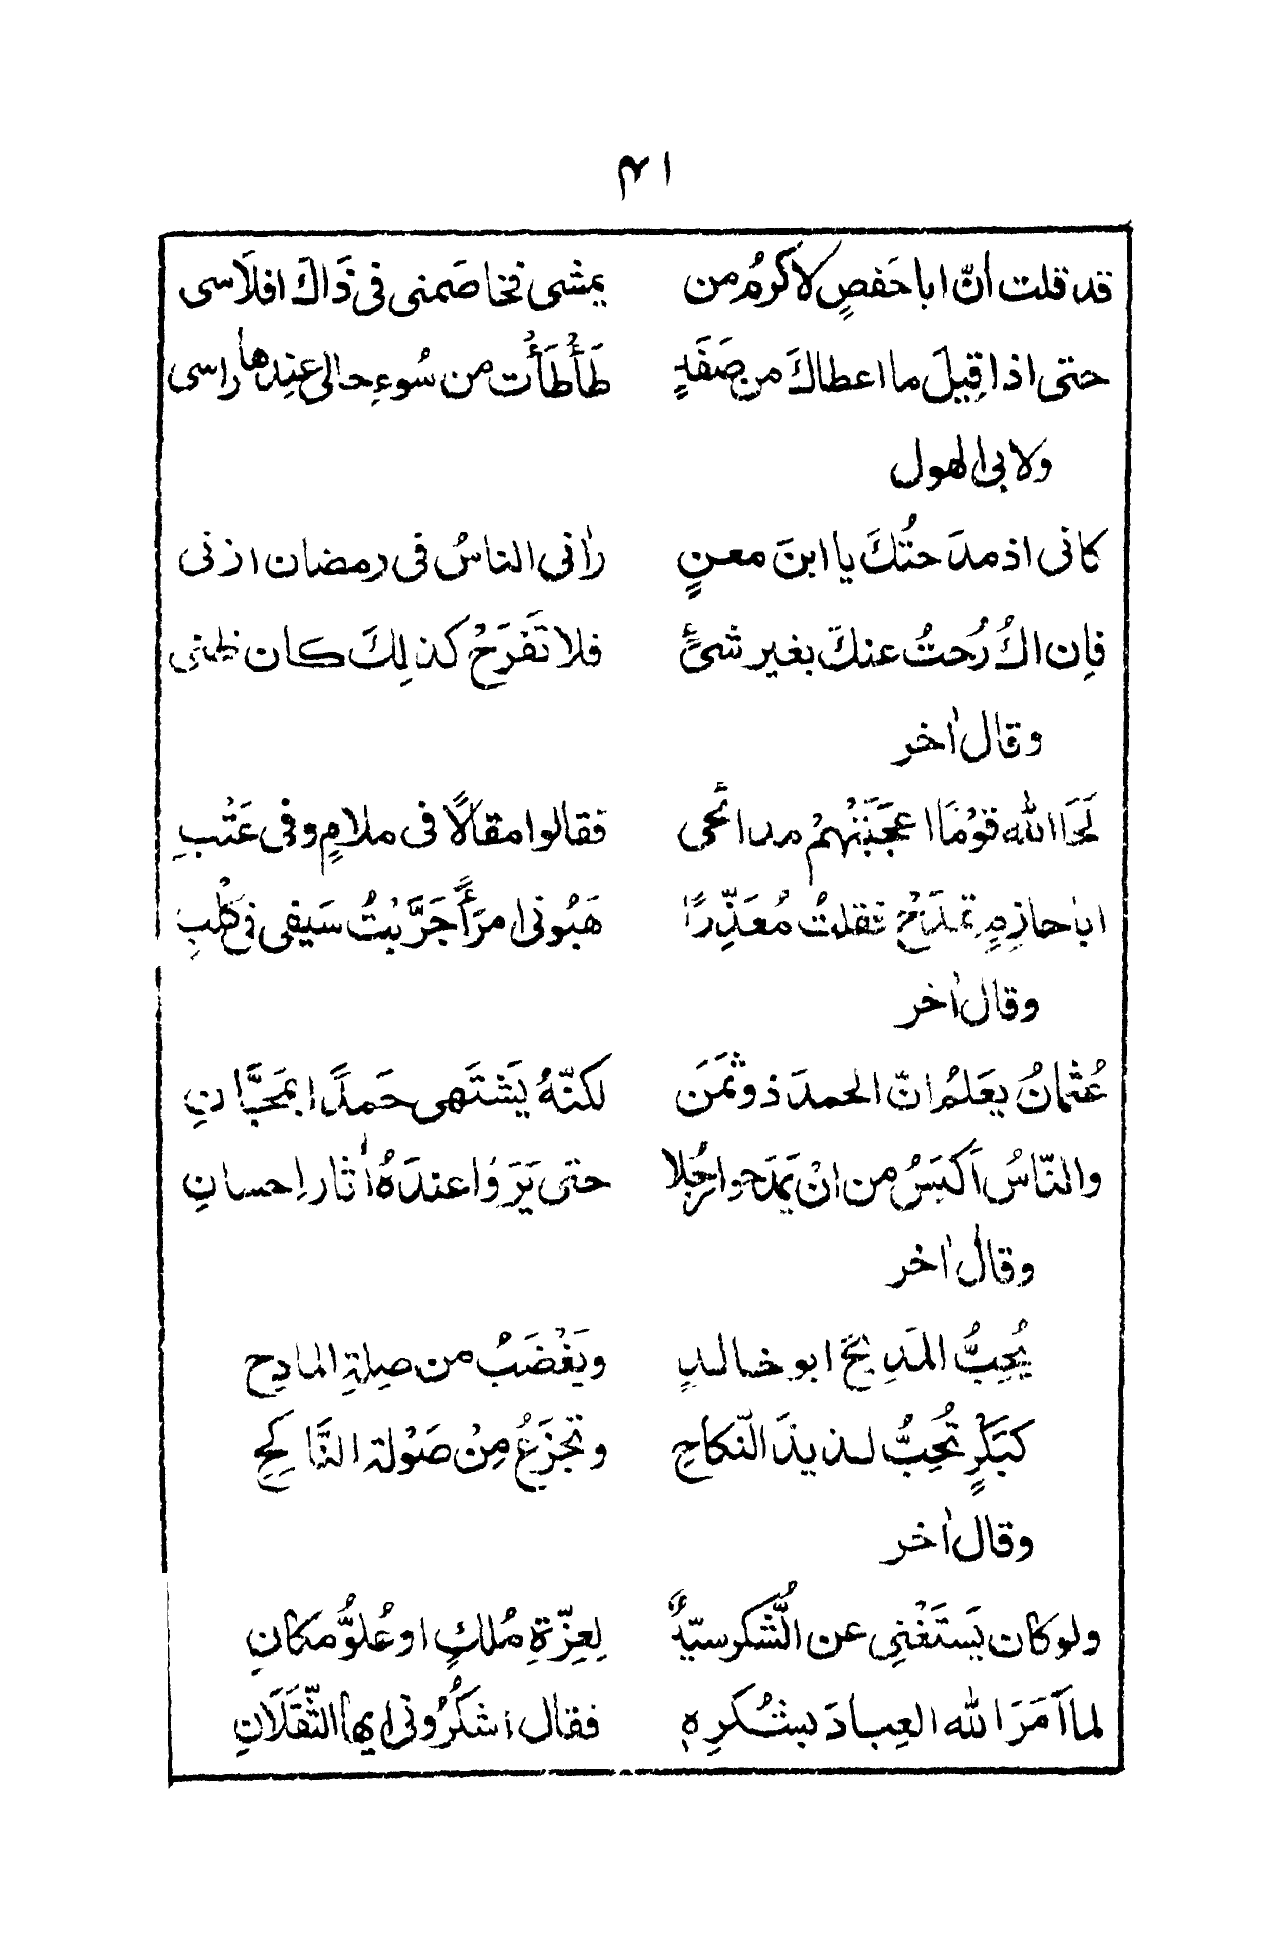 ۴۱
قد قلت أنّ ابا حَفصٍ لاكرمُ من يمشى فخاصَمنى فى ذَاك افلَاسى
حتى اذا قِيلَ ما اعطاكَ من صَفَدٍ طَأْطَأْتُ من سُوءِ حالى عِندها راسى
ولابى الهول
كانى اذ مدَحتُكَ يا ابنَ معنٍ رآنى الناسُ فى رمضان ازنى
فإن اكُ رُحتُ عنكَ بغير شئٍ فلا تَفرَحْ كذلِكَ كان ظنى
وقال اٰخر
لَحَا الله قوْمًا اعجَبَتْهُمْ مدائحى فقالوا مقالًا فى ملامٍ وفى عَتْبِ
ابا حازِمٍ تمدَحْ فقلتُ مُعَذِّرًا هَبُونى امرَأً جَرَّبتُ سَيفى فى كلْبِ
وقال اٰخر
عُثمانُ يعَلمُ انّ الحمدَ ذو ثمَن لكنّهُ يَشتَهى حَمدًا بمَجَّانِ
والنّاسُ اَكيَسُ من انْ يَمدَحوا رجُلا حتى يَرَوا عندَهُ اٰثار اِحسانِ
وقال اٰخر
يُحِبُّ المَدِيحَ ابو خالدٍ ويَغْضَبُ من صِلةِ المادِح
كبَكْرٍ تُحِبُّ لذيذَ النّكاحِ وتجزَعُ مِنْ صَوْلةِ النَّاكِحِ
وقال اٰخر
ولو كان يَستَغْنِى عن الشُّكر سيّدٌ لِعِزّةِ مُلكٍ او عُلوُّ مكانِ
لما اَمَرَ الله العِبادَ بشُكرِهِ فقال اشكُرُونى ايها الثّقَلَانِ